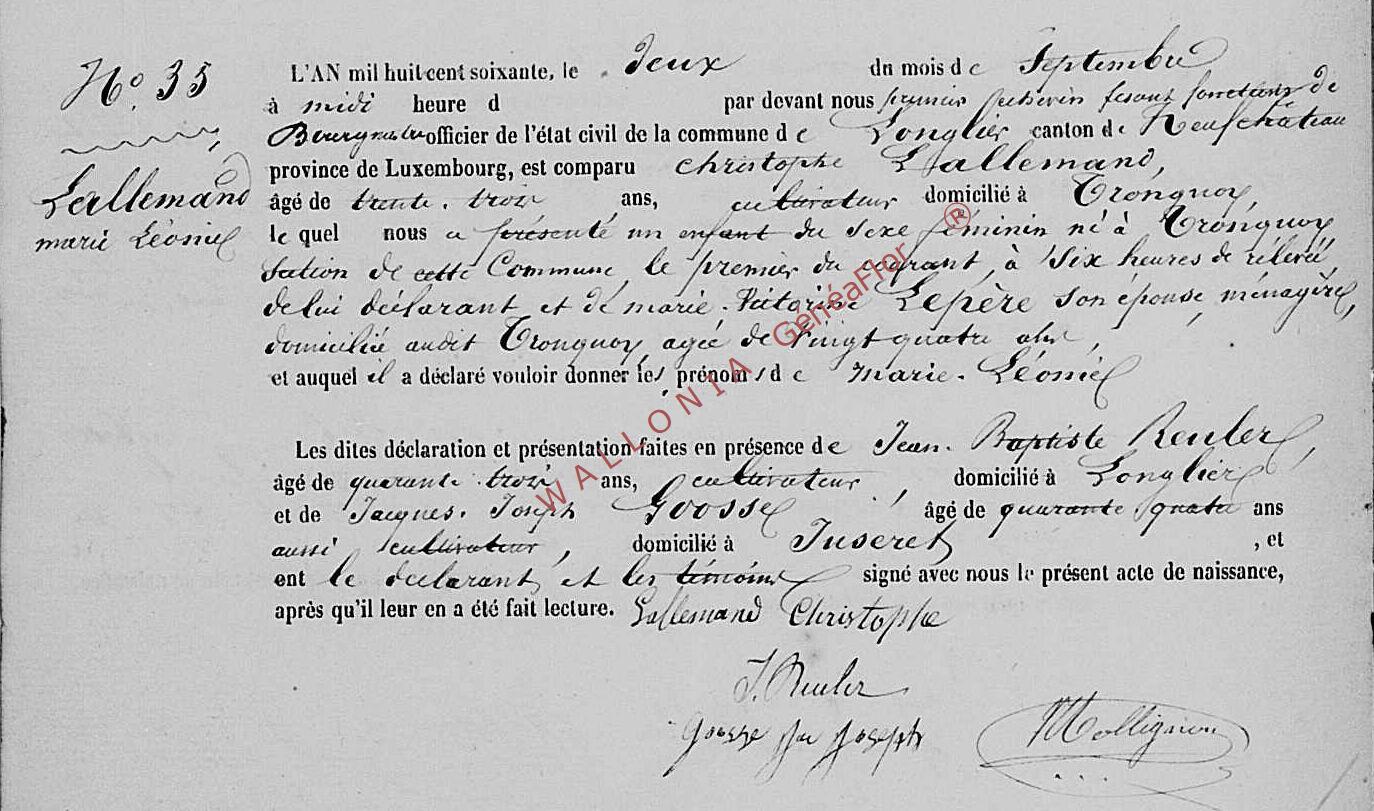 N° 35
Lallemand
marie Léonie
L'AN mil huit cent soixante, le deux du mois de Septembre
à midi heure d par devant nous premier échevin fesant fonctions de
Bourgmestre officier de l'état civil de la commune de Longlier canton de Neufchâteau
province de Luxembourg, est comparu Christophe Lallemand,
âgé de trente-trois ans, cultivateur domicilié à Tronquoy
le quel nous a présenté un enfant du sexe féminin né à Tronquoy
Section de cette Commune, le premier du courant, à six heures de relevée
de lui déclarant et de marie-Victorine Lepère son épouse, ménagère,
domicilié audit Tronquoy, agée de vingt quatre ans,
et auquel il a déclaré vouloir donner les prénoms de marie-Léonie
Les dites déclaration et présentation faites en présence de Jean-Baptiste Reuler,
âgé de quarante-trois ans, cultivateur, domicilié à Longlier
et de Jacques-Joseph Goosse âgé de quarante quatre ans
aussi cultivateur, domicilié à Juseret, et
ont le déclarant et les témoins signé avec nous le présent acte de naissance,
après qu'il leur en a été fait lecture. Lallemand Christophe
J. Reuler
Goosse Joseph
WALLONIA GenéaFlor ®